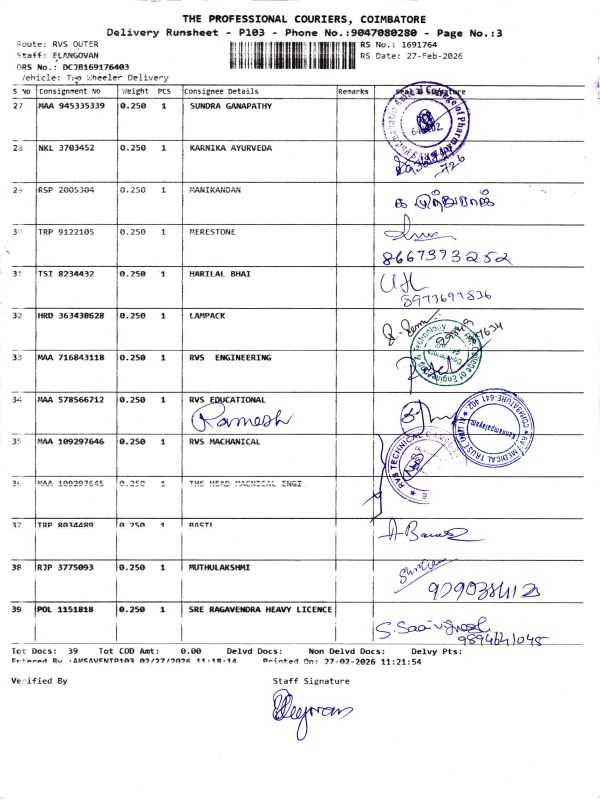 THE PROFESSIONAL COURIERS, COIMBATORE
Delivery Runsheet - P103 - Phone No.:9047080280 - Page No.:3
Route: RVS OUTER RS No.: 1691764
Staff: ELANGOVAN RS Date: 27-Feb-2026
DRS No.: DCJB169176403
Vehicle: Two Wheeler Delivery
S No Consignment No Weight PCS Consignee Details Remarks
27 MAA 945335339 0.250 1 SUNDRA GANAPATHY
28 NKL 3703452 0.250 1 KARNIKA AYURVEDA
29 RSP 2005304 0.250 1 MANIKANDAN
30 TRP 9122105 0.250 1 MERESTONE
8667393252
31 TSI 8234432 0.250 1 HARILAL BHAI
8973697836
32 HRD 363438628 0.250 1 LAMPACK
33 MAA 716843118 0.250 1 RVS ENGINEERING
34 MAA 578566712 0.250 1 RVS EDUCATIONAL
Ramesh
35 MAA 109297646 0.250 1 RVS MACHANICAL
36 MAA 109297645 0.250 1 THE HEAD MACNICAL ENGI
37 TRP 8034489 0.250 1 BASIL
38 RJP 3775093 0.250 1 MUTHULAKSHMI
39 POL 1151818 0.250 1 SRE RAGAVENDRA HEAVY LICENCE
Tot Docs: 39 Tot COD Amt: 0.00 Delvd Docs: Non Delvd Docs: Delvy Pts:
Entered By :AMSAVENIP103 02/27/2026 11:18:14 Printed On: 27-02-2026 11:21:54
Verified By Staff Signature